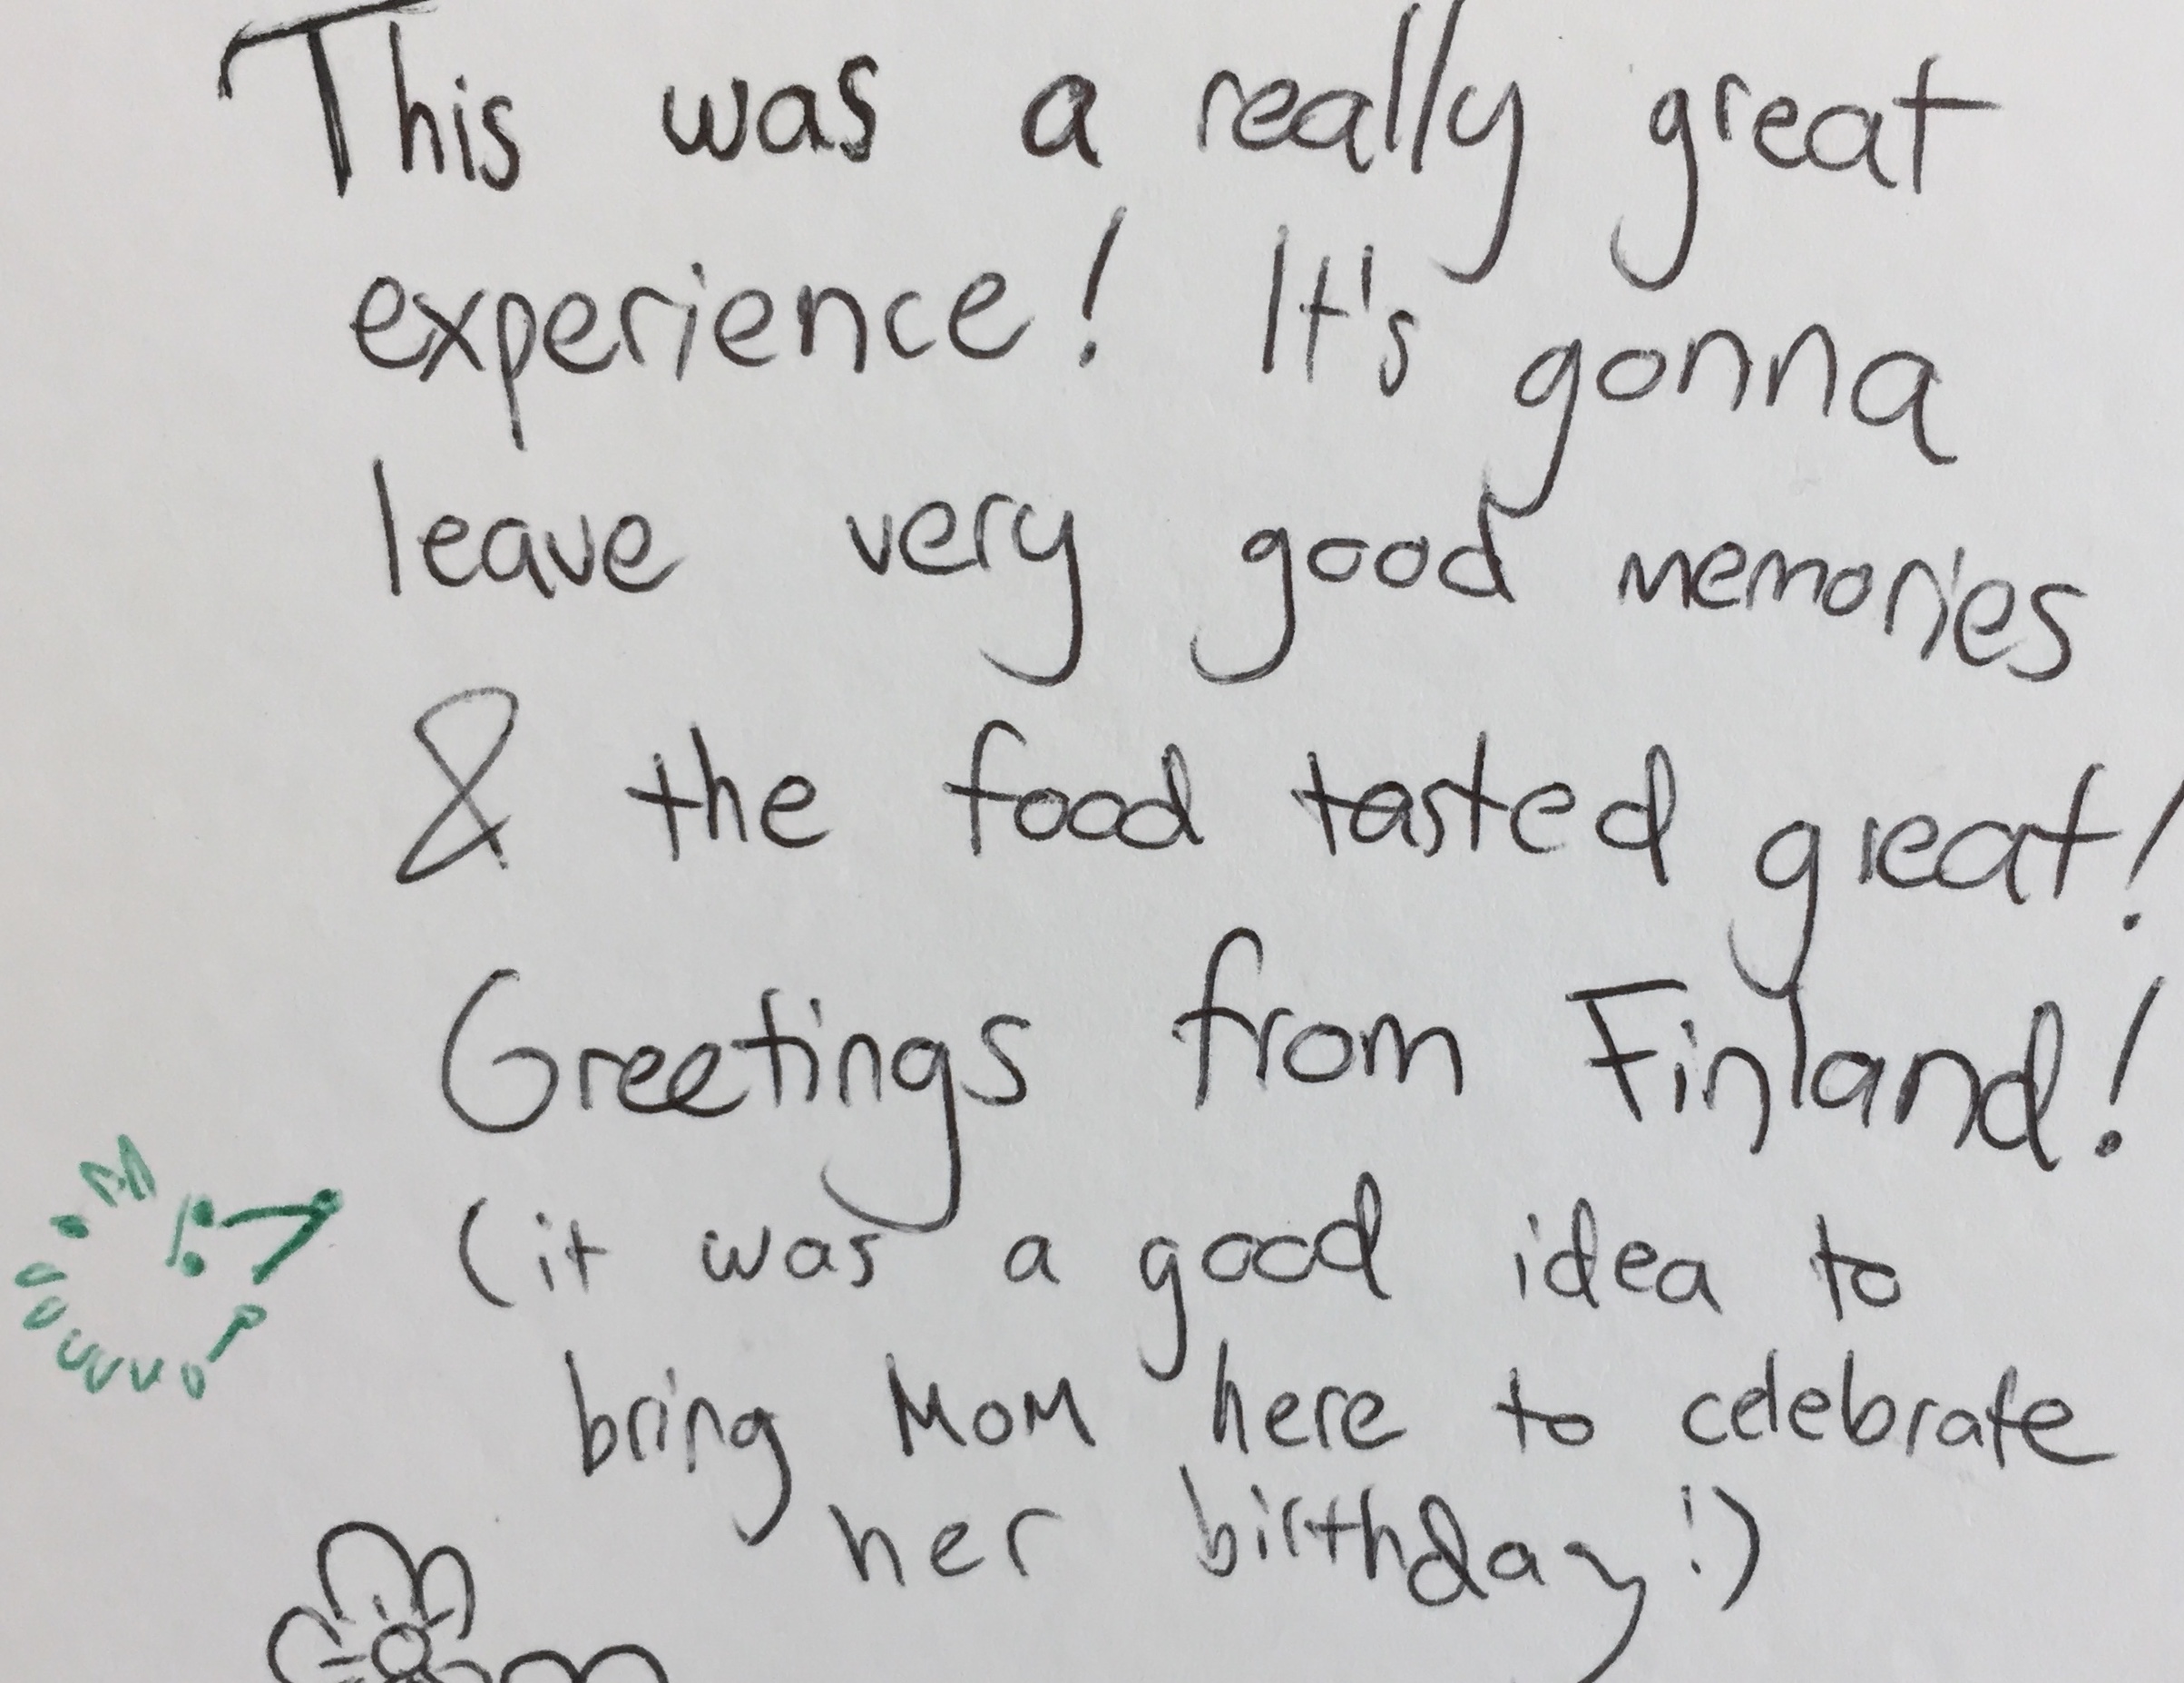 This was a really great
experience! It's gonna
leave very good memories
& the food tasted great!
Greetings from Finland!
(it was a good idea to
bring Mom here to celebrate
her birthday!)